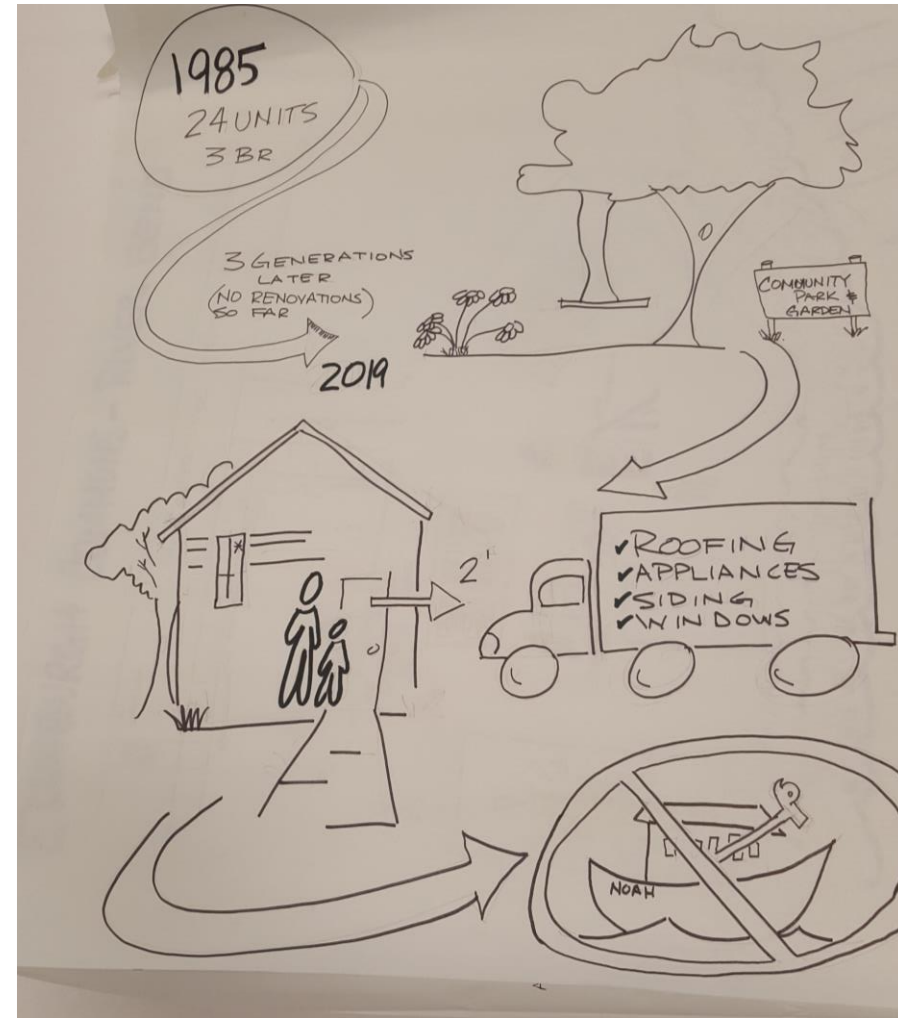 1985
24 UNITS
3 BR
3 GENERATIONS
LATER
(NO RENOVATIONS)
SO FAR
2019
COMMUNITY
PARK &
GARDEN
2'
✓ROOFING
✓APPLIANCES
✓SIDING
✓WINDOWS
NOAH